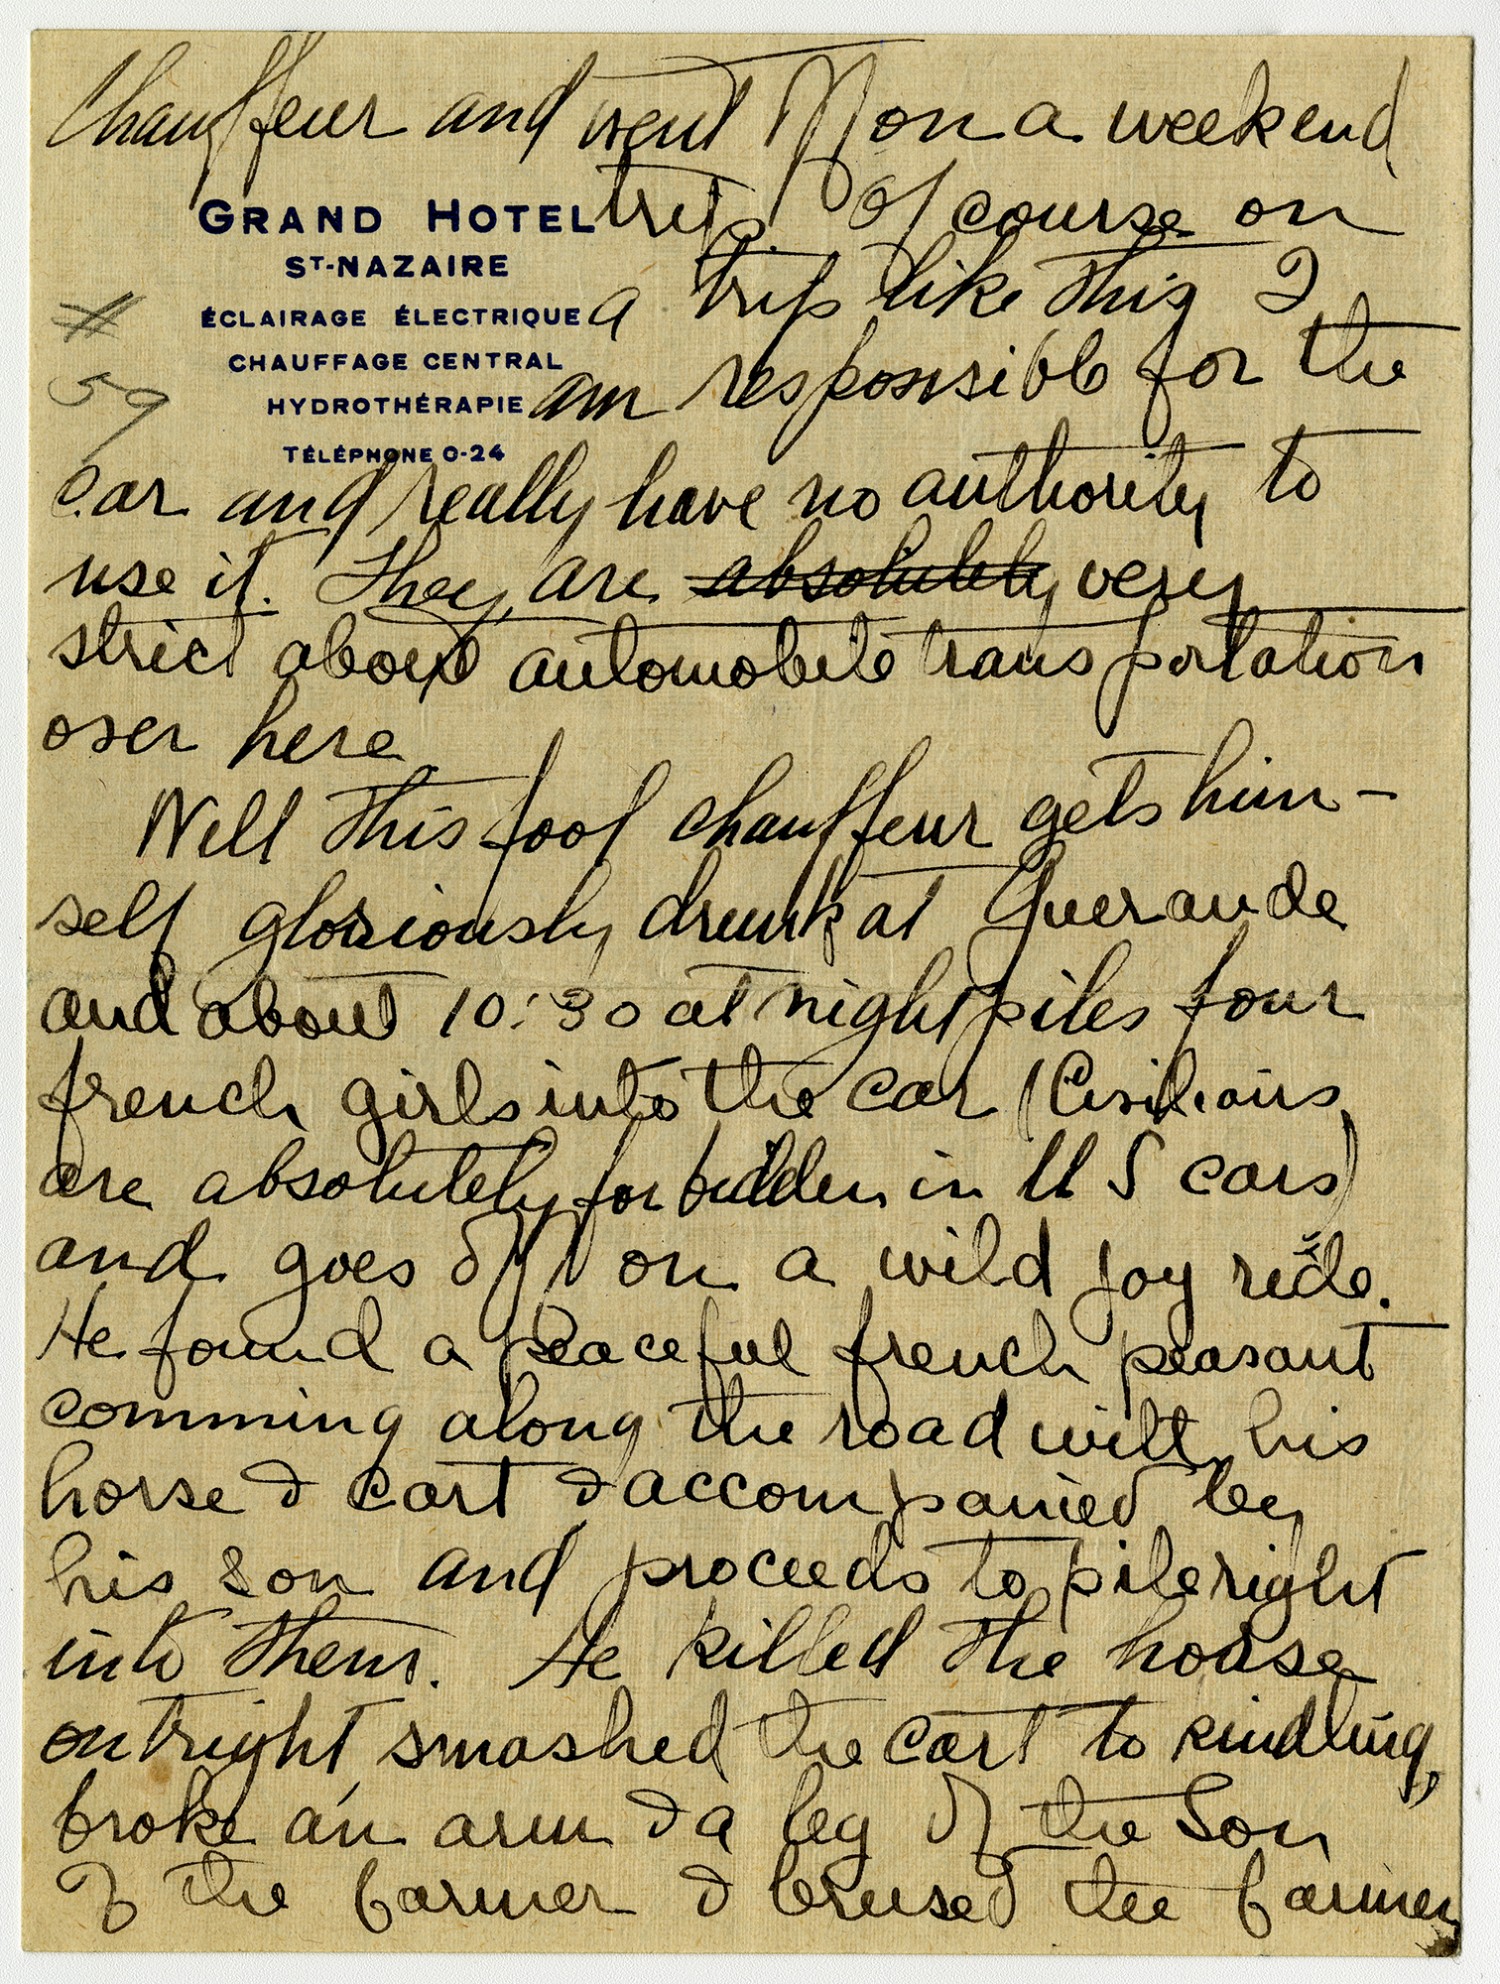 Chauffeur and went on a weekend
GRAND HOTEL
ST-NAZAIRE
ÉCLAIRAGE ÉLECTRIQUE
CHAUFFAGE CENTRAL
HYDROTHÉRAPIE
TÉLÉPHONE 0-24
# 59
trip. Of course on
a trip like this I
am responsible for the
car and really have no authority to
use it. They are absolutely very
strict about automobile transportation
over here
Well this fool chauffeur gets him-
self gloriously drunk at Guerande
and about 10:30 at night piles four
french girls into the car (Civilians
are absolutely forbidden in U S cars)
and goes off on a wild joy ride.
He found a peaceful french peasant
comming along the road with his
horse & cart & accompanied by
his son and proceeds to pile right
into them. He killed the horse
outright smashed the cart to kindling,
broke an arm & a leg of the Son
of the farmer & brused the farmer